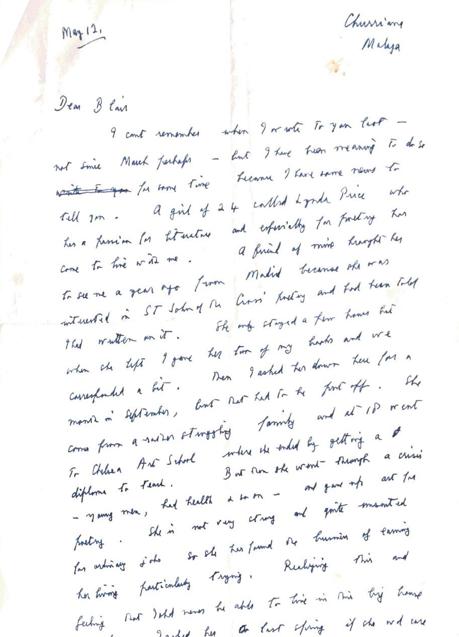 May 12.
Churriana
Malaga
Dear Blair
I cant remember when I wrote to you last –
not since March perhaps – but I have been meaning to do so
write to you for some time because I have some news to
tell you. A girl of 24 called Lynda Price who
has a passion for literature and especially for poetry has
come to live with me. A friend of mine brought her
to see me a year ago from Madrid because she was
interested in St John of the Cross' poetry and had been told
I had written on it. She only stayed a few hours but
when she left I gave her two of my books and we
corresponded a bit. Then I asked her down here for a
month in September, but that had to be put off. She
comes from a rather struggling family and at 18 went
to Chelsea Art School where she ended by getting a
diploma to teach. But then she went through a crisis
– young men, bad health & so on – and gave up art for
poetry. She is not very strong and quite unsuited
for ordinary jobs so she has found the business of earning
her living particularly trying. Realizing this and
feeling that I shd never be able to live in this big house
I asked her last spring if she wd care